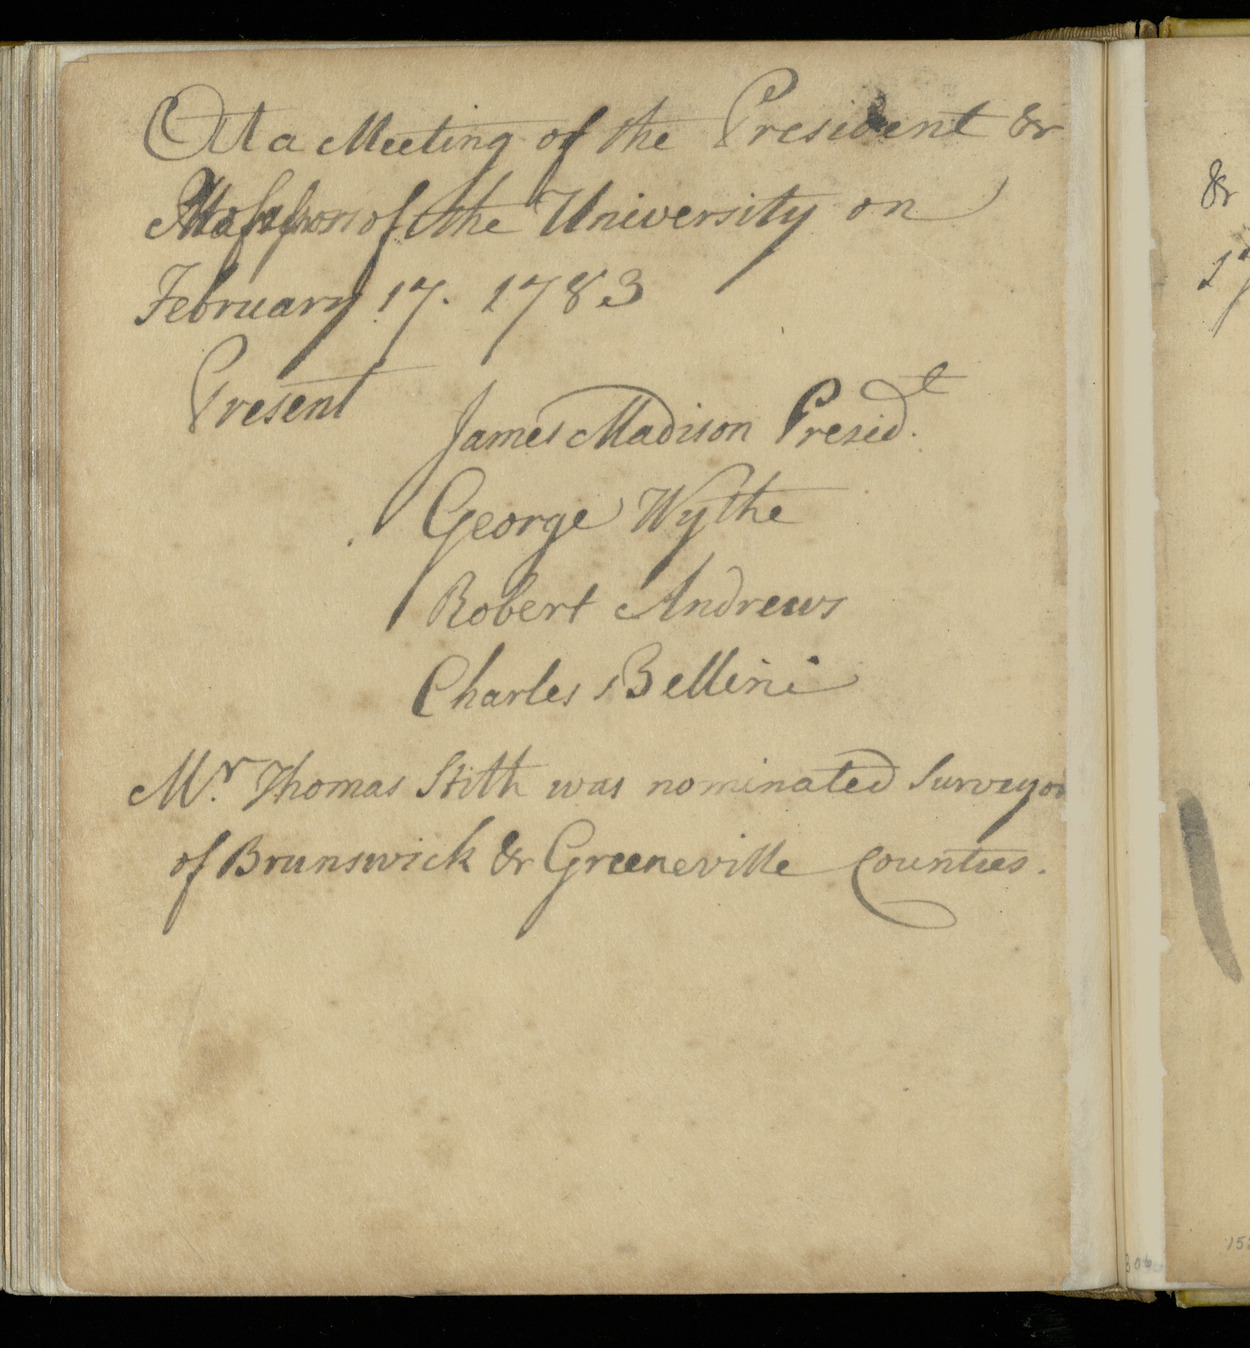 At a Meeting of the President &
of the University on
February 17. 1783
Present
James Madison Presid.t
George Wythe
Robert Andrews
Charles Bellini
Mr. Thomas Stith was nominated Surveyor
of Brunswick & Greeneville Counties.
&